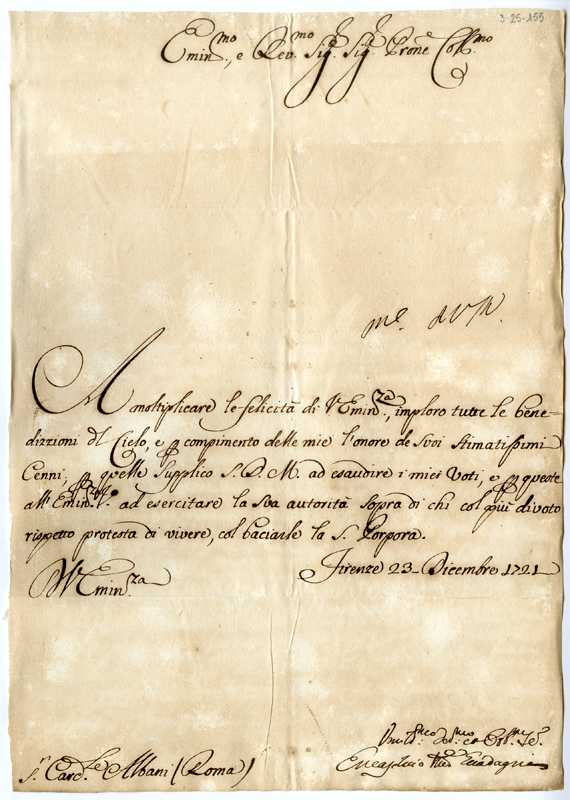 3-25-155
Emin.mo, e Rev.mo Sig.r Sig.r Prone Coll.mo
A moltiplicare le felicità di V Emin.za, imploro tutte le bene-
dizzioni dl Cielo, e p compimento delle mie l'onore de Svoi Stimatissimi
Cenni; p quelle Supplico S. D. M. ad esaudire i miei Voti, e p queste
all' Emin.za V.ª ad esercitare la Sva autorità sopra di chi col più divoto
rispetto protesta di vivere, col baciarle la S. Porpora.
V Emin.za
Firenze 23 Dicembre 1721
S.r Card.le Albani (Roma)